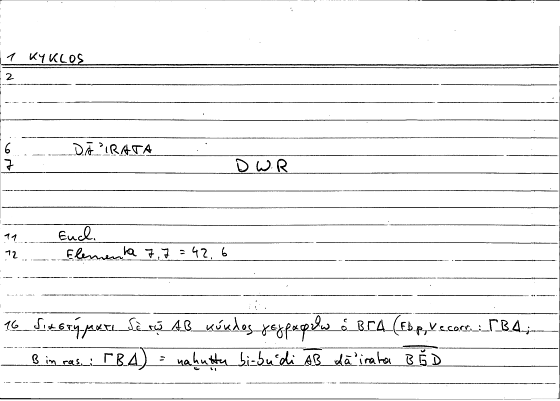 1 KYKLOS
2
6 DĀʾIRATA
7 DWR
11 Eucl.
12 Elementa 7,7 = 42, 6
16 διαστήματι δὲ τῷ ΑΒ κύκλος γεγράφθω ὁ ΒΓΔ (Fbp, V e corr.: ΓΒΔ;
B in ras.: ΓΒΔ) = naḫuṭṭu bi-buʿdi A̅B̅ dāʾirata B̅Ǧ̅D̅